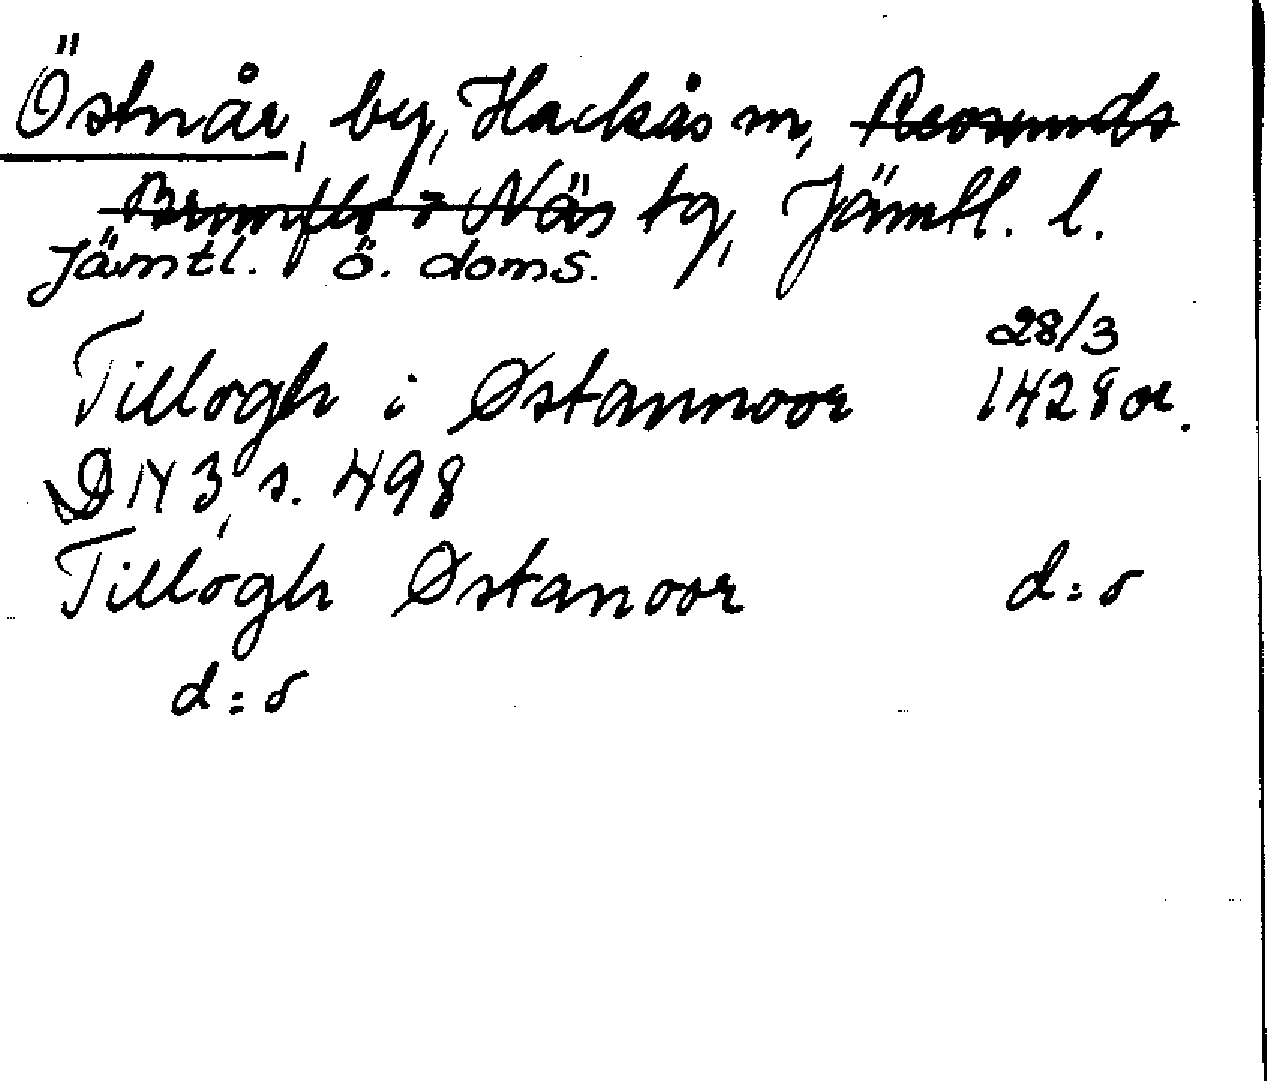 Östnår, by, Hackås sn, Revsunds
Brunflo o Näs tg, Jämtl. l.
Jämtl. ö. doms.
28/3
Tillogh i Østannoor 1428 or.
DN 3, s. 498
Tillogh Østanoor d:o
d:o